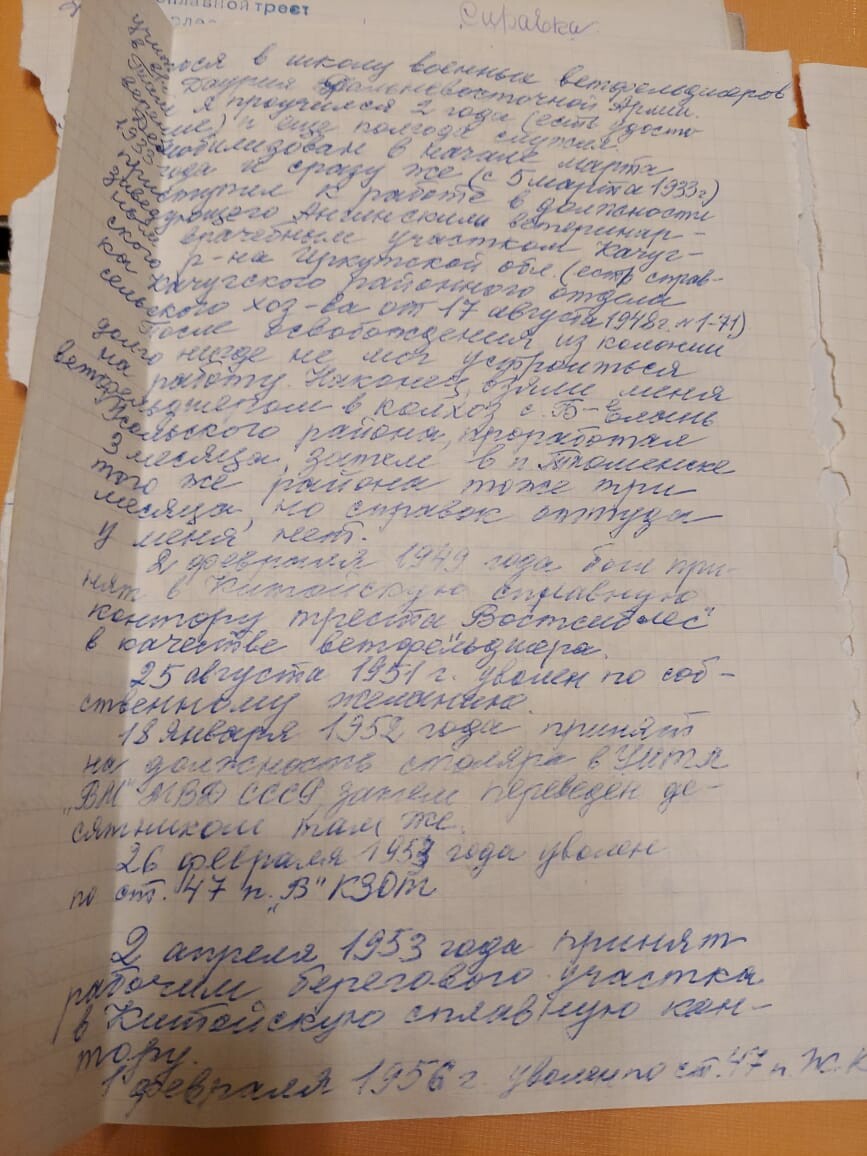 плавной трест
Справка
учиться в школу военных ветфельдшеров
в Даурия Дальневосточной Армии.
Там я проучился 2 года (есть удосто
верение) и еще полгода служил
Демобилизован в начале марта
1933 года и сразу же (с 5 марта 1933 г.)
приступил к работе в должности
заведующего Ангинским ветеринар-
ным врачебным участком Качуг-
ского р-на Иркутской обл. (есть справ-
ка Качугского районного отдела
сельского хоз-ва от 17 августа 1948 г. № 1-71)
После освобождения из колонии
долго нигде не мог устроиться
на работу. Наконец, взяли меня
ветфельдшером в колхоз с. Б-Елань
Усольского района, проработал
3 месяца, затем в п. Тюменске
того же района тоже три
месяца, но справок оттуда
у меня нет.
2 февраля 1949 года был при-
нят в Китойскую сплавную
контору треста "Востсиблес"
в качестве ветфельдшера.
25 августа 1951 г. уволен по соб-
ственному желанию.
18 января 1952 года принят
на должность столяра в УИТЛ
"ВН" МВД СССР, затем переведен де-
сятником там же.
26 февраля 1953 года уволен
по ст. 47 п. "В" КЗОТ
2 апреля 1953 года принят
рабочим берегового участка
в Китойскую сплавную кон-
тору.
1 февраля 1956 г. уволен по ст. 47 п. Ж. К